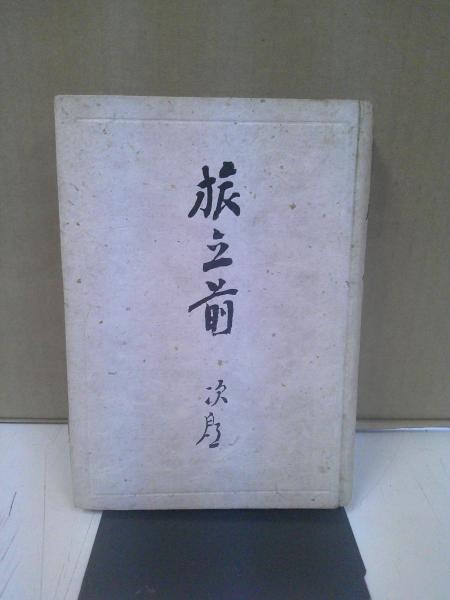 旅立前
次郎